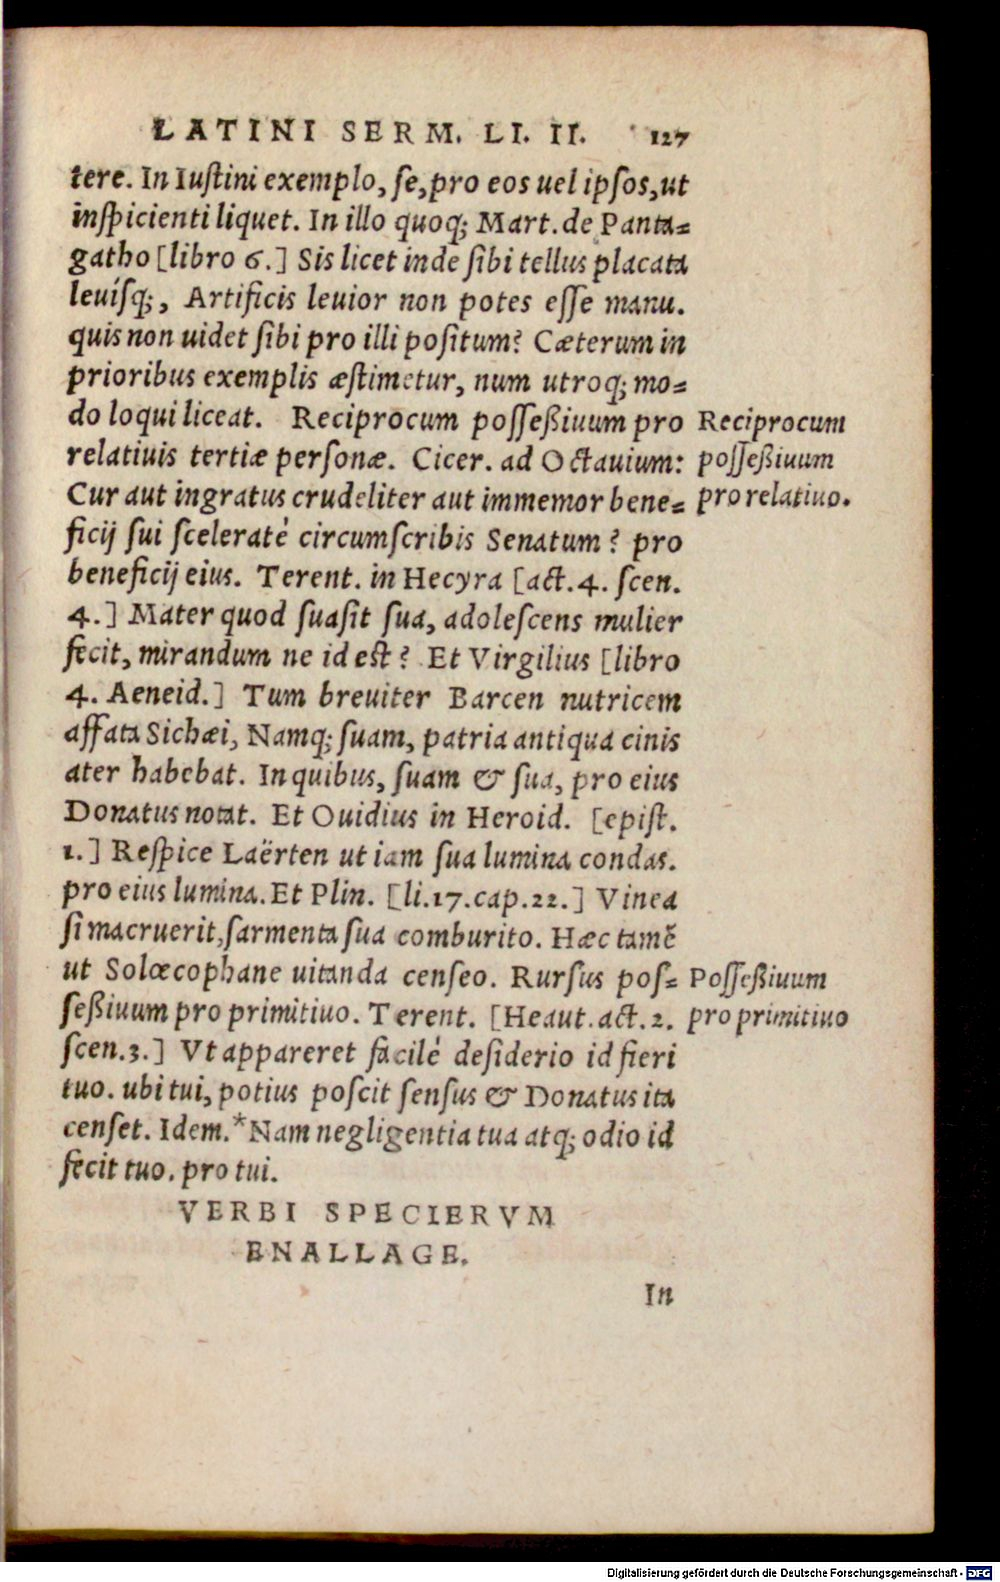 LATINI SERM. LI. II. 127
tere. In Iustini exemplo, se, pro eos uel ipsos, ut
inspicienti liquet. In illo quoq; Mart. de Panta=
gatho [libro 6.] Sis licet inde sibi tellus placata
leuísq;, Artificis leuior non potes esse manu.
quis non uidet sibi pro illi positum? Cæterum in
prioribus exemplis æstimetur, num utroq; mo=
do loqui liceat. Reciprocum posseßiuum pro
relatiuis tertiæ personæ. Cicer. ad Octauium:
Cur aut ingratus crudeliter aut immemor bene=
ficij sui sceleratè circumscribis Senatum? pro
beneficij eius. Terent. in Hecyra [act. 4. scen.
4.] Mater quod suasit sua, adolescens mulier
fecit, mirandum ne id est? Et Virgilius [libro
4. Aeneid.] Tum breuiter Barcen nutricem
affata Sichæi, Namq; suam, patria antiqua cinis
ater habebat. In quibus, suam & sua, pro eius
Donatus notat. Et Ouidius in Heroid. [epist.
1.] Respice Laërten ut iam sua lumina condas.
pro eius lumina. Et Plin. [li. 17. cap. 22.] Vinea
si macruerit, sarmenta sua comburito. Hæc tamē
ut Solœcophane uitanda censeo. Rursus pos=
seßiuum pro primitiuo. Terent. [Heaut. act. 2.
scen. 3.] Vt appareret facilè desiderio id fieri
tuo. ubi tui, potius poscit sensus & Donatus ita
censet. Idem. *Nam negligentia tua atq; odio id
fecit tuo. pro tui.
Reciprocum
posseßiuum
pro relatiuo.
Posseßiuum
pro primitiuo
VERBI SPECIERVM
ENALLAGE.
In
Digitalisierung gefördert durch die Deutsche Forschungsgemeinschaft - DFG